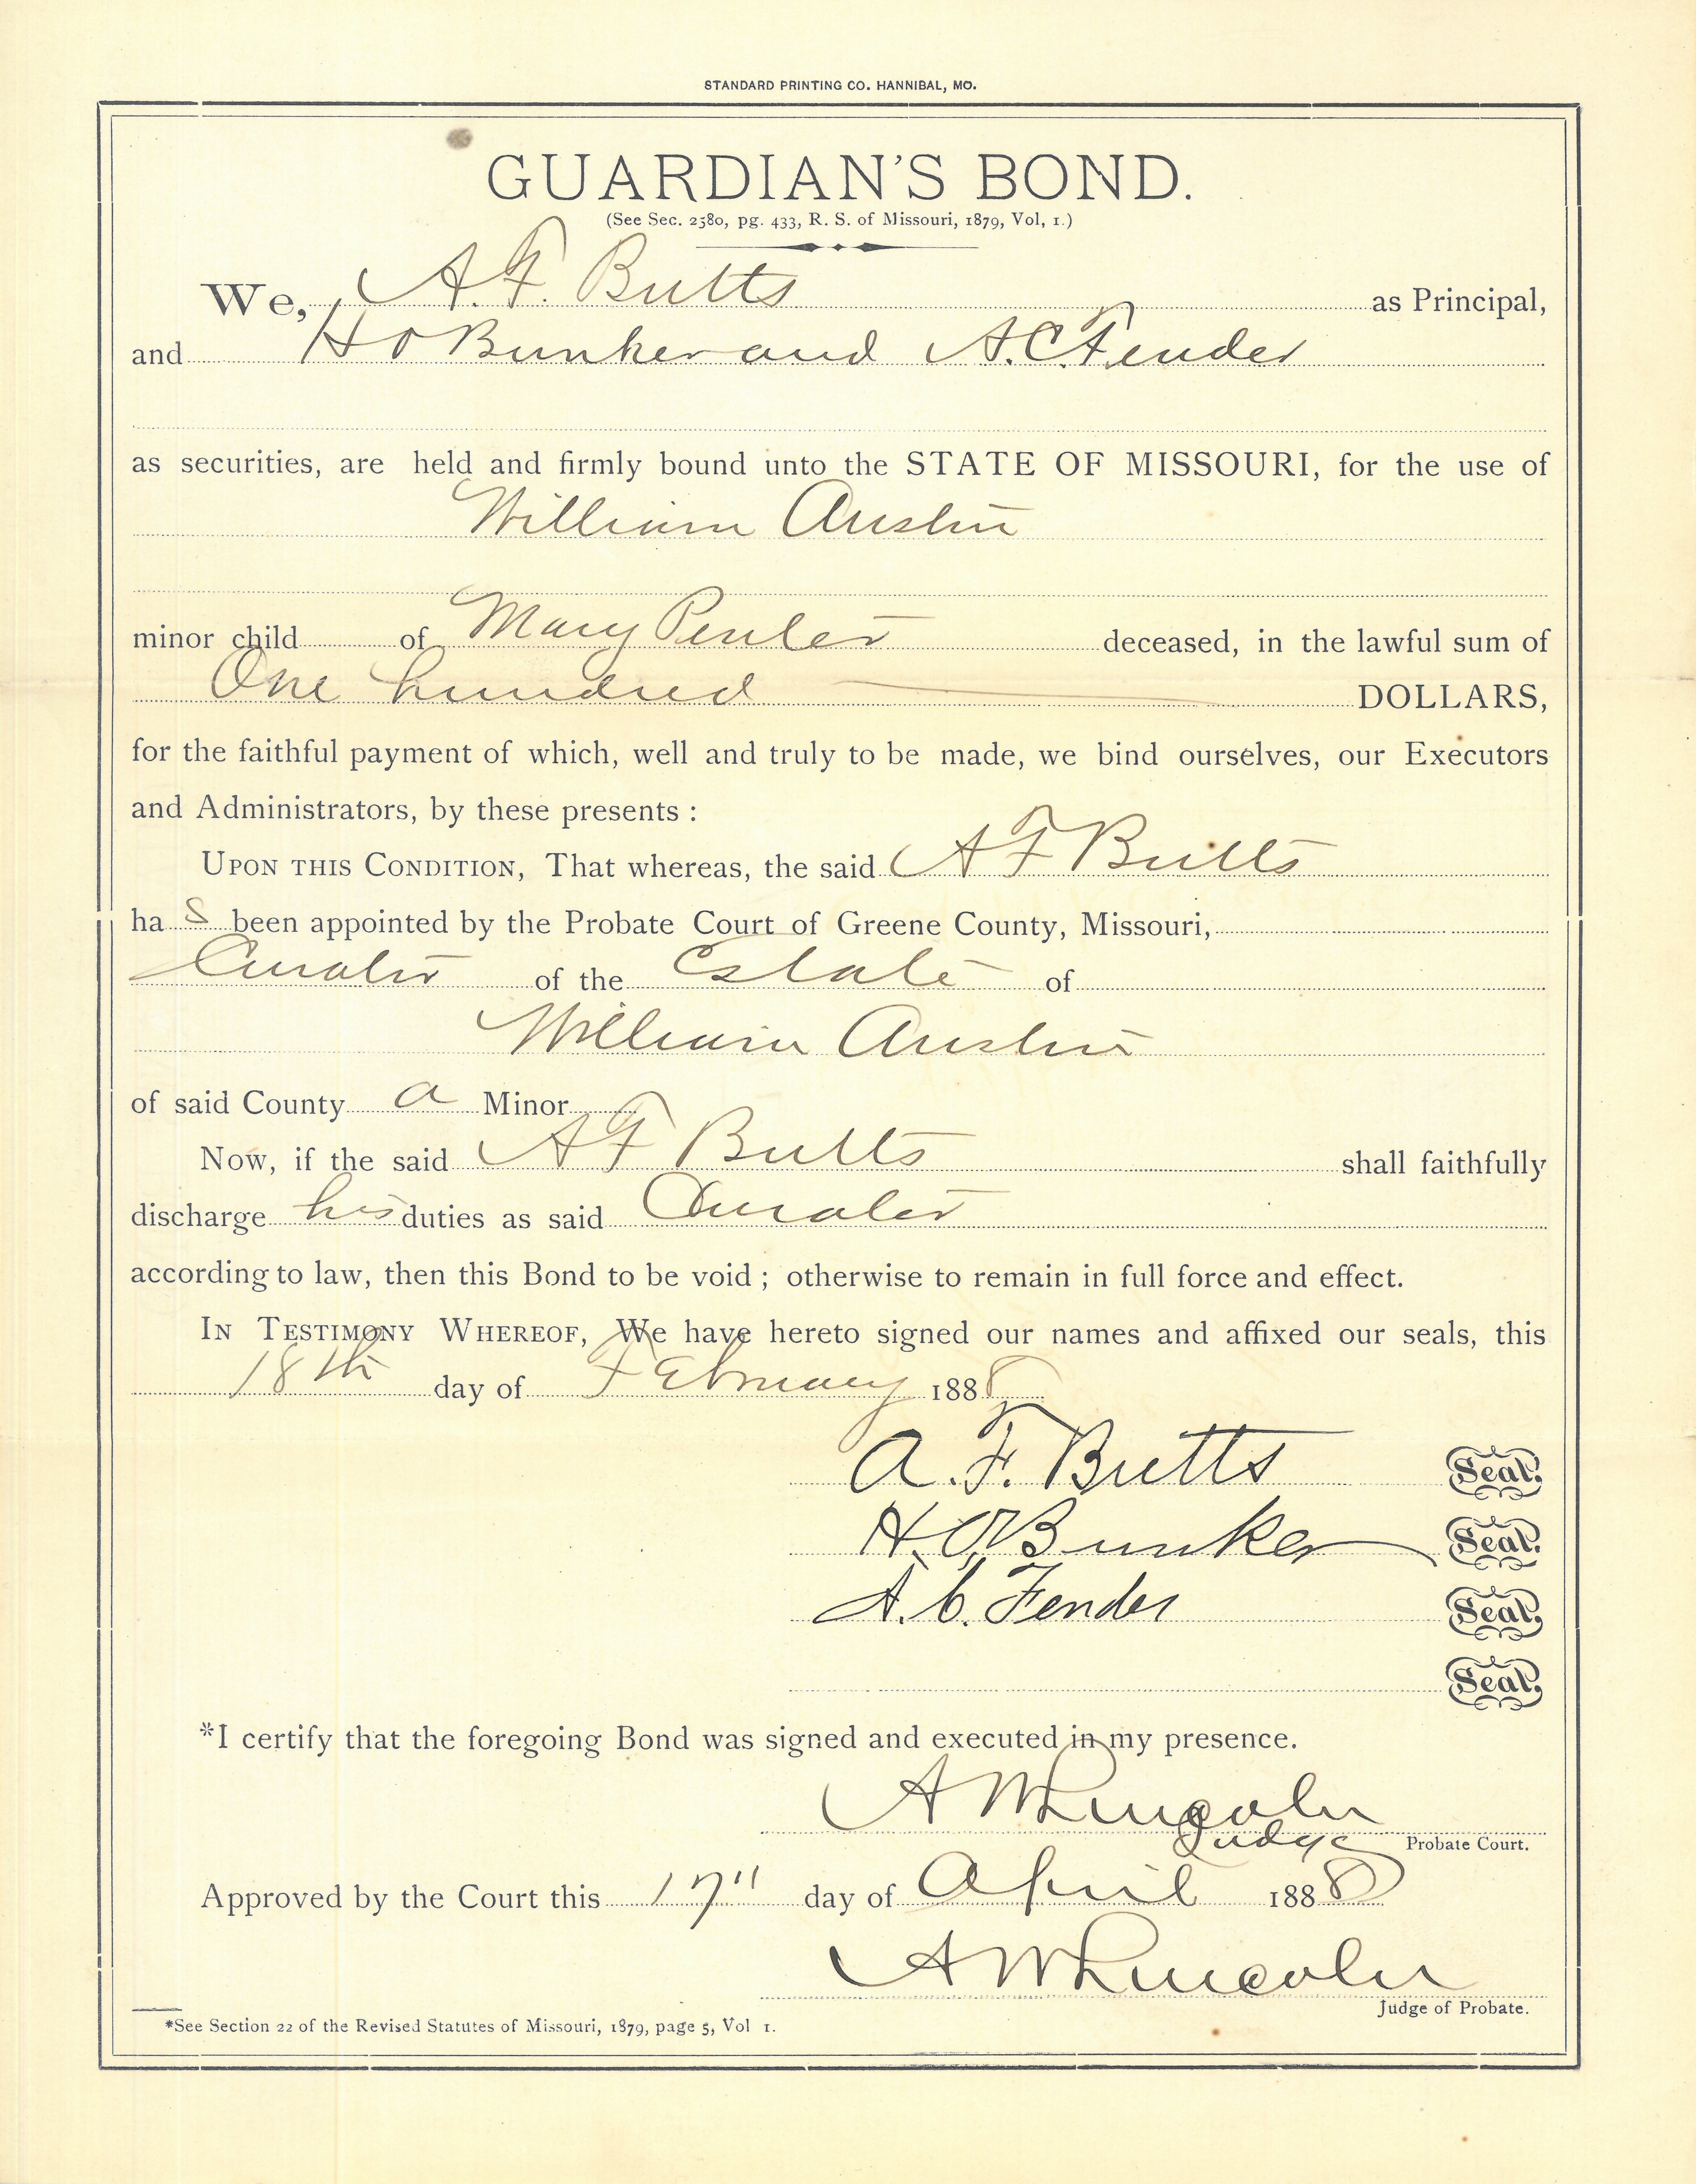 STANDARD PRINTING CO. HANNIBAL, MO.
GUARDIAN'S BOND.
(See Sec. 2580, pg. 433, R. S. of Missouri, 1879, Vol, 1.)
We, A. F. Butts as Principal,
and H O Bunker and A. C. Fender
as securities, are held and firmly bound unto the STATE OF MISSOURI, for the use of
William Austin
minor child of Mary deceased, in the lawful sum of
One hundred DOLLARS,
for the faithful payment of which, well and truly to be made, we bind ourselves, our Executors
and Administrators, by these presents :
UPON THIS CONDITION, That whereas, the said A F Butts
ha s been appointed by the Probate Court of Greene County, Missouri,
Curator of the Estate of
William Austin
of said County a Minor
Now, if the said A F Butts shall faithfully
discharge his duties as said Curator
according to law, then this Bond to be void ; otherwise to remain in full force and effect.
IN TESTIMONY WHEREOF, We have hereto signed our names and affixed our seals, this
18th day of February 1888
A. F. Butts Seal.
H. O. Bunker Seal.
A. C. Fender Seal.
Seal.
*I certify that the foregoing Bond was signed and executed in my presence.
A W Lincoln
Judge Probate Court.
Approved by the Court this 17" day of April 1888
A W Lincoln
Judge of Probate.
*See Section 22 of the Revised Statutes of Missouri, 1879, page 5, Vol 1.